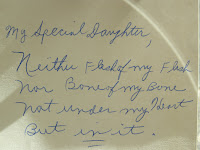 My Special Daughter,
Neither Flesh of my Flesh
Nor Bone of my Bone
Not under my Heart
But in it.